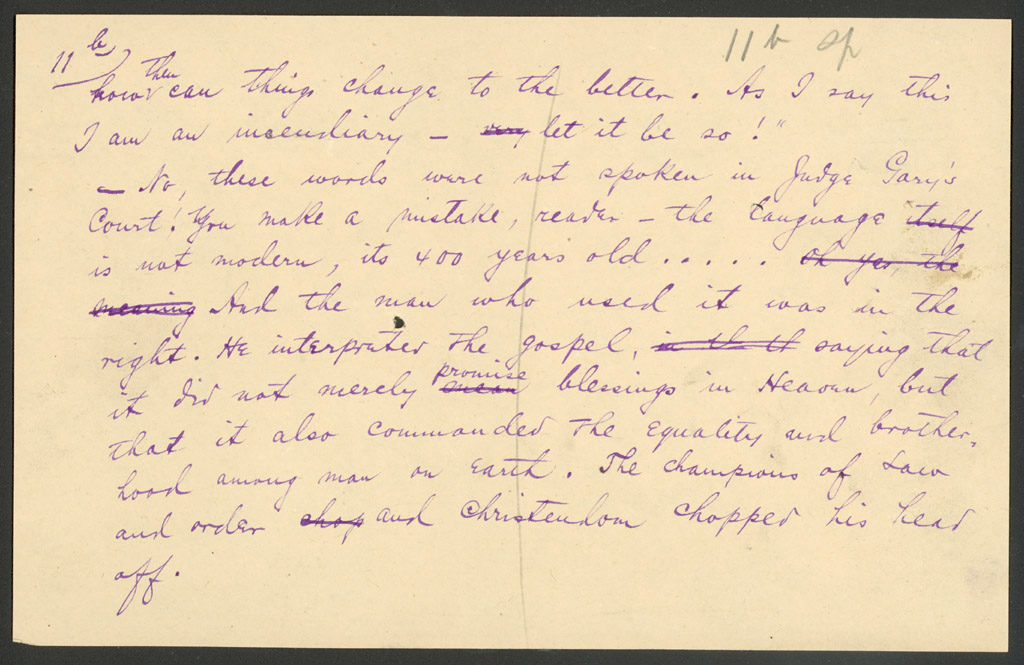 11 b 11 b
how then can things change to the better. As I say this
I am an incendiary – very let it be so!"
– No, these words were not spoken in Judge Gary's
Court! You make a mistake, reader – the language itself
is not modern, its 400 years old ..... Oh yes, the
meaning And the man who used it was in the
right. He interpreted the gospel, in th th saying that
it did not merely mean promise blessings in Heaven, but
that it also commanded the Equality and brother-
hood among man on Earth. The champions of Law
and order chop and Christendom chopped his head
off.